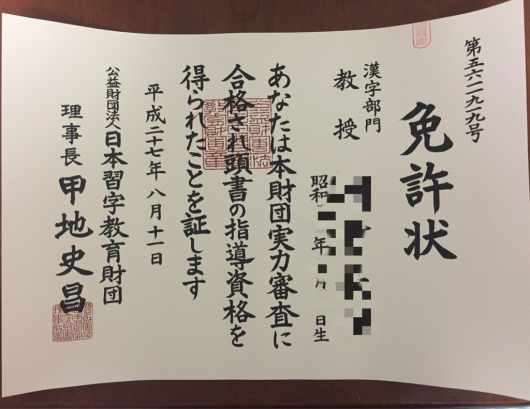 第五六二九九号
免許状
漢字部門
教授
昭和 年 月 日生
あなたは本財団実力審査に
合格され頭書の指導資格を
得られたことを証します
平成二十七年八月十一日
公益財団法人日本習字教育財団
理事長 甲地史昌